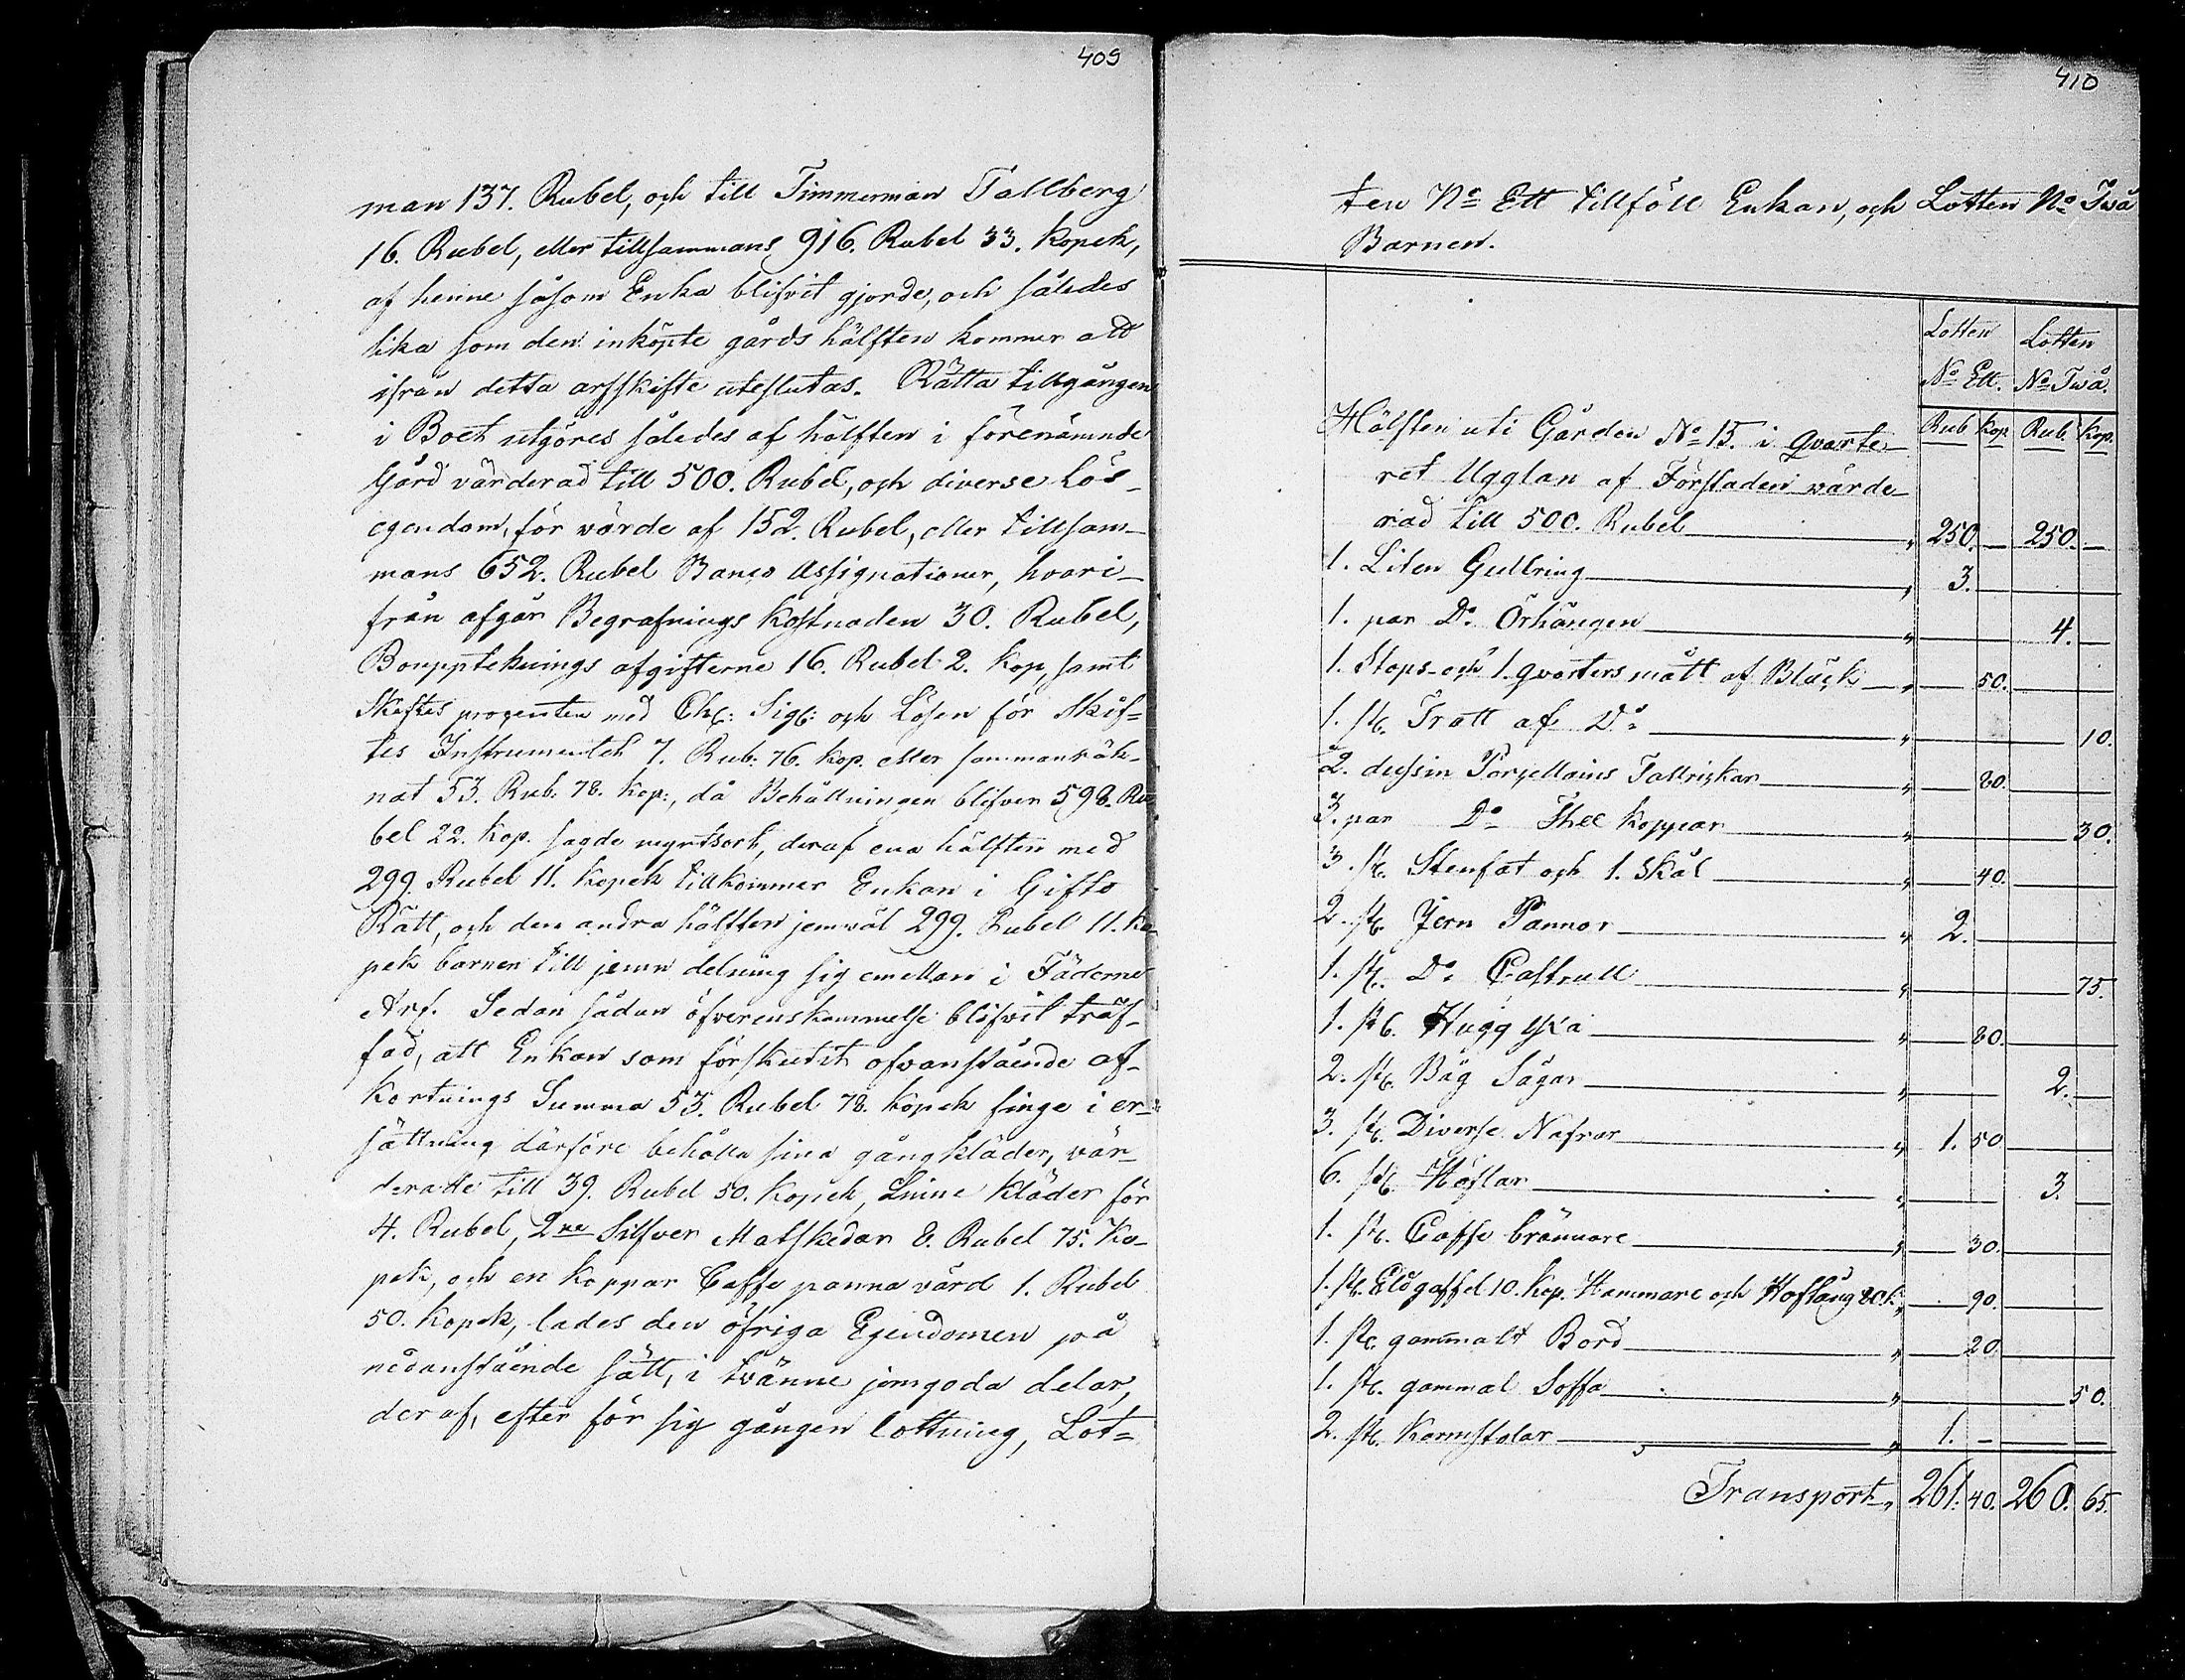 409
man 137. Rubel, och till Timmerman Tallberg
16. Rubel, eller tillsammans 916. Rubel 33. Kopek,
af henne såsom Enka blifvit gjorde, och således
lika som den inköpte gårds hälften kommer att
ifrån detta arfskifte uteslutas. Rätta tillgången
i Boet utgöres således af hälften i förenämnde
Gård värderad till 500. Rubel, och diverse Lös-
egendom, för värde af 152. Rubel, eller tillsam-
mans 652. Rubel Banco Assignationer, hvari-
från afgår Begrafnings Kostnaden 30. Rubel,
Bouppteknings afgifterne 16. Rubel 2. Kop, samt
Skiftes procenten med Chɶ: Sigɶ: och Lösen för Skif-
tes Instrumentet 7. Rub: 76. Kop. eller sammanräk-
nat 53. Rub: 78. Kop:, då Behållningen blifver 598. Ru
bel 22. Kop. sagde myntsort, deraf ena hälften med
299. Rubel 11. Kopek tillkommer Enkan i Gifto
Rätt, och den andra hälften jemväl 299. Rubel 11. Ko-
pek barnen till jemn delning sig emellan i Fäderne
Arf. Sedan sådan öfverenskommelse blifvit träf-
fad, att Enkan som förskutit ofvanstående af-
kortnings Summa 53. Rubel 78. Kopek finge i er-
sättning därföre behålla sina gångkläder, vär-
derade till 39. Rubel 50. Kopek, Linne Kläder för
4. Rubel, 2ne Silfver Matskedar 8. Rubel 75. Ko-
pek, och en Koppar Caffe panna värd 1. Rubel
50. Kopek, lades den öfriga Egendomen på
nedanstående sätt, i tvänne jemgoda delar,
deraf, efter för sig gången lottning, Lot-
410
ten No Ett tillföll Enkan, och Lotten No Två
Barnen.
Lotten No Ett. Lotten No Två.
Rub Kop Rub. Kop.
Hälften uti Gården No 15. i Qvarte-
ret Ugglan af Förstaden värde-
rad till 500. Rubel " 250. — 250. —
1. Liten Gullring " 3.
1. par Do Örhängen " 4. —
1. Stops- och 1. qvarters mått af Bläck " 50.
1. st. Tratt af Do " 10.
2. dussin Porcellains Tallrickar " 80.
3. par Do Thee Koppar " 30.
3. st. Stenfat och 1. Skål " 40.
2. st. Jern Pannor " 2.
1. st. Do Castrull " 75.
1. st. Hugg Yxa " 80.
2. st. Båg Sågar " 2. —
3. st. Diverse Nafrar " 1. 50
6. st. Höflar " 3. —
1. st. Caffe brännare " 30.
1. st. Eldgaffel 10. Kop. Hammare och Hoftång 80. k. " 90.
1. st. gammalt Bord " 20.
1. st. gammal Soffa " 50.
2. st. Karmstolar " 1. —
Transport " 261. 40. 260. 65.